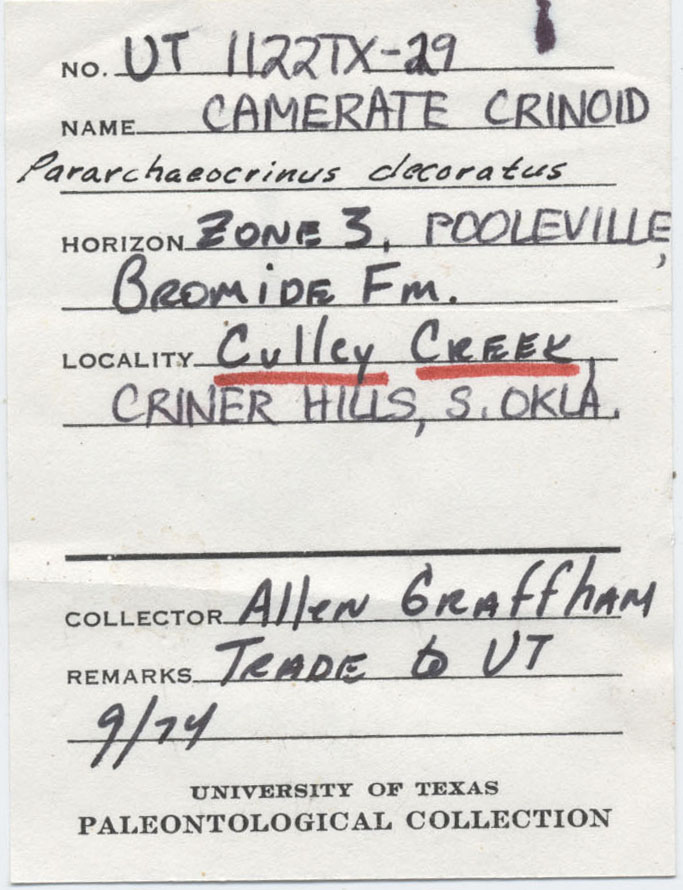 NO. UT 1122TX-29
NAME CAMERATE CRINOID
Pararchaeocrinus decoratus
HORIZON ZONE 3, POOLEVILLE,
BROMIDE FM.
LOCALITY Culley CREEK,
CRINER HILLS, S. OKLA.
COLLECTOR Allen GRAffHAM
REMARKS TRADE to UT
9/74
UNIVERSITY OF TEXAS
PALEONTOLOGICAL COLLECTION